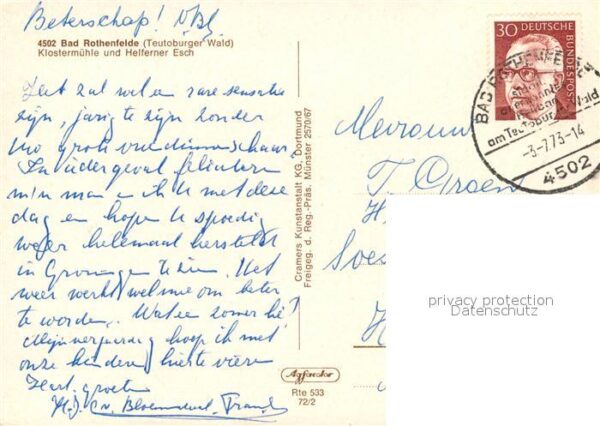 Beterschap!
4502 Bad Rothenfelde (Teutoburger Wald)
Klostermühle und Helferner Esch
Het zal wel een rare sensatie
zijn, jarig te zijn zonder
grote vriendinnenschaar!
In ieder geval feliciteren
mijn man en ik U met deze
dag en hopen U spoedig
weer helemaal hersteld
in Groningen te zien. Het
weer werkt wel mee om beter
te worden. Wat een zomer hè!
Mijn verjaardag hoop ik met
onze kinderen hier te vieren
Hart. groeten
Bloemendaal
Cramers Kunstanstalt KG, Dortmund
Freigeg. d. Reg.-Präs. Münster 2570/67
Agfacolor
Rte 533
72/2
30 DEUTSCHE
BUNDESPOST
BAD ROTHENFELDE
am Teutobur Wald
-3-7.73-14
4502
Mevrouw
T. Groen
privacy protection
Datenschutz